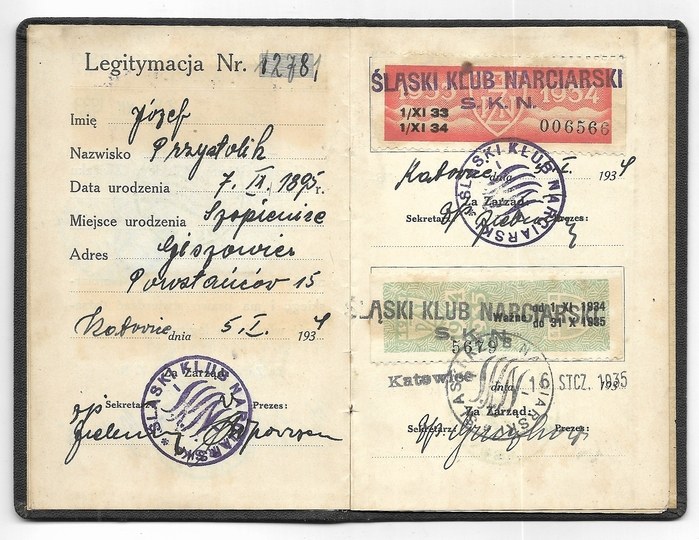 Legitymacja Nr. 12781
Imię Józef
Nazwisko Przystolik
Data urodzenia 7. III. 1895 r.
Miejsce urodzenia Szopienice
Adres Giszowiec
Powstańców 15
Katowice dnia 5. I. 1934
Za Zarząd:
Sekretarz: Prezes:
ŚLĄSKI KLUB NARCIARSKI
ŚLĄSKI KLUB NARCIARSKI
S. K. N.
1933 1934
1/XI 33
1/XI 34
006566
Katowice dnia 5. I. 1934
Za Zarząd:
Sekretarz: Prezes:
ŚLĄSKI KLUB NARCIARSKI
ŚLĄSKI KLUB NARCIARSKI
Ważne od 1 XI 1934
do 31 X 1935
S. K. N.
5679
Katowice dnia 16 STCZ. 1935
193
Za Zarząd:
Sekretarz: Prezes: